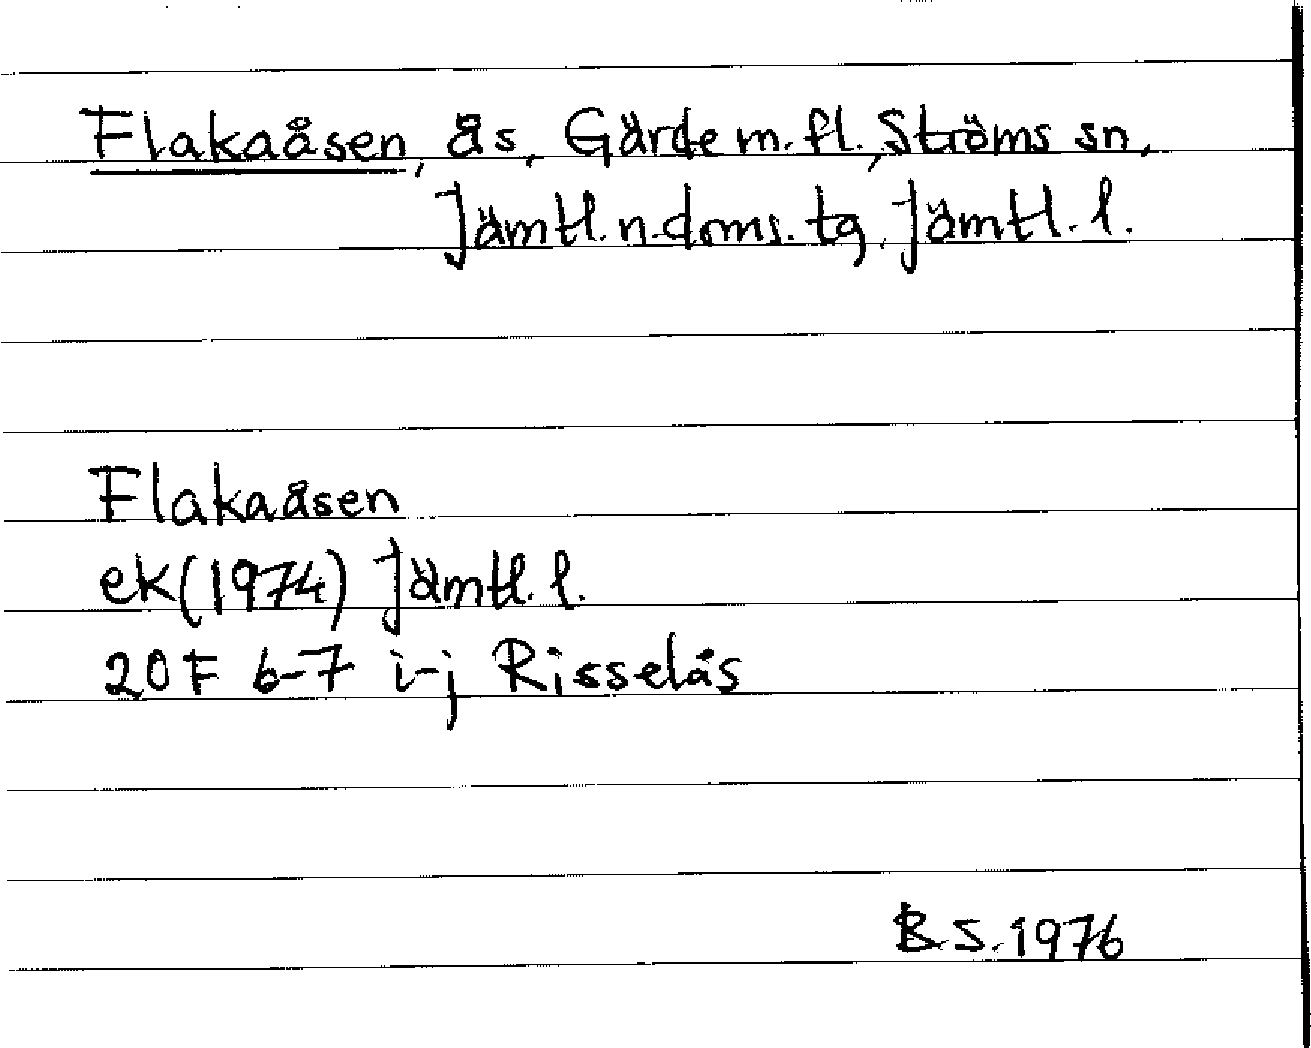 Flakaåsen, ås, Gärde m.fl., Ströms sn,
Jämtl.n.doms.tg, Jämtl.l.
Flakaåsen
ek(1974) Jämtl.l.
20F 6-7 i-j Risselås
B.S.1976